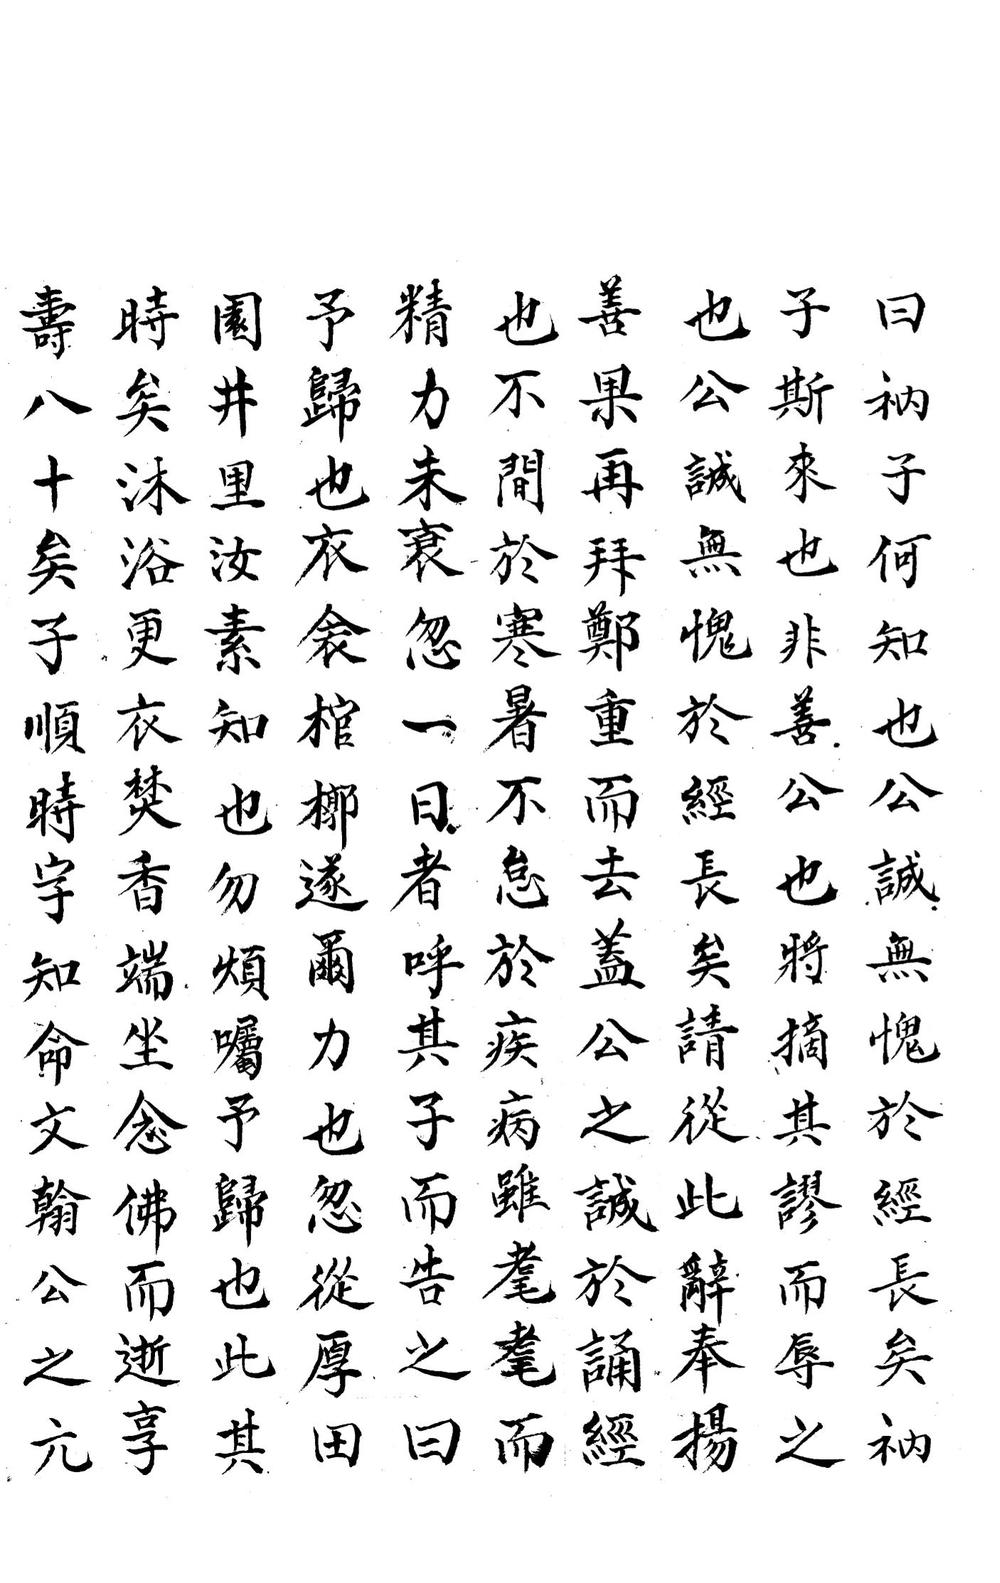 曰衲子何知也公誠無愧於經長矣衲
子斯來也非善公也將摘其謬而辱之
也公誠無愧於經長矣請從此辭奉揚
善果再拜鄭重而去蓋公之誠於誦經
也不間於寒暑不怠於疾病雖耄耄而
精力未衰忽一日者呼其子而告之曰
予歸也衣衾棺槨遂爾力也忽從厚田
園井里汝素知也勿煩囑予歸也此其
時矣沐浴更衣焚香端坐念佛而逝享
壽八十矣子順時字知命文翰公之元